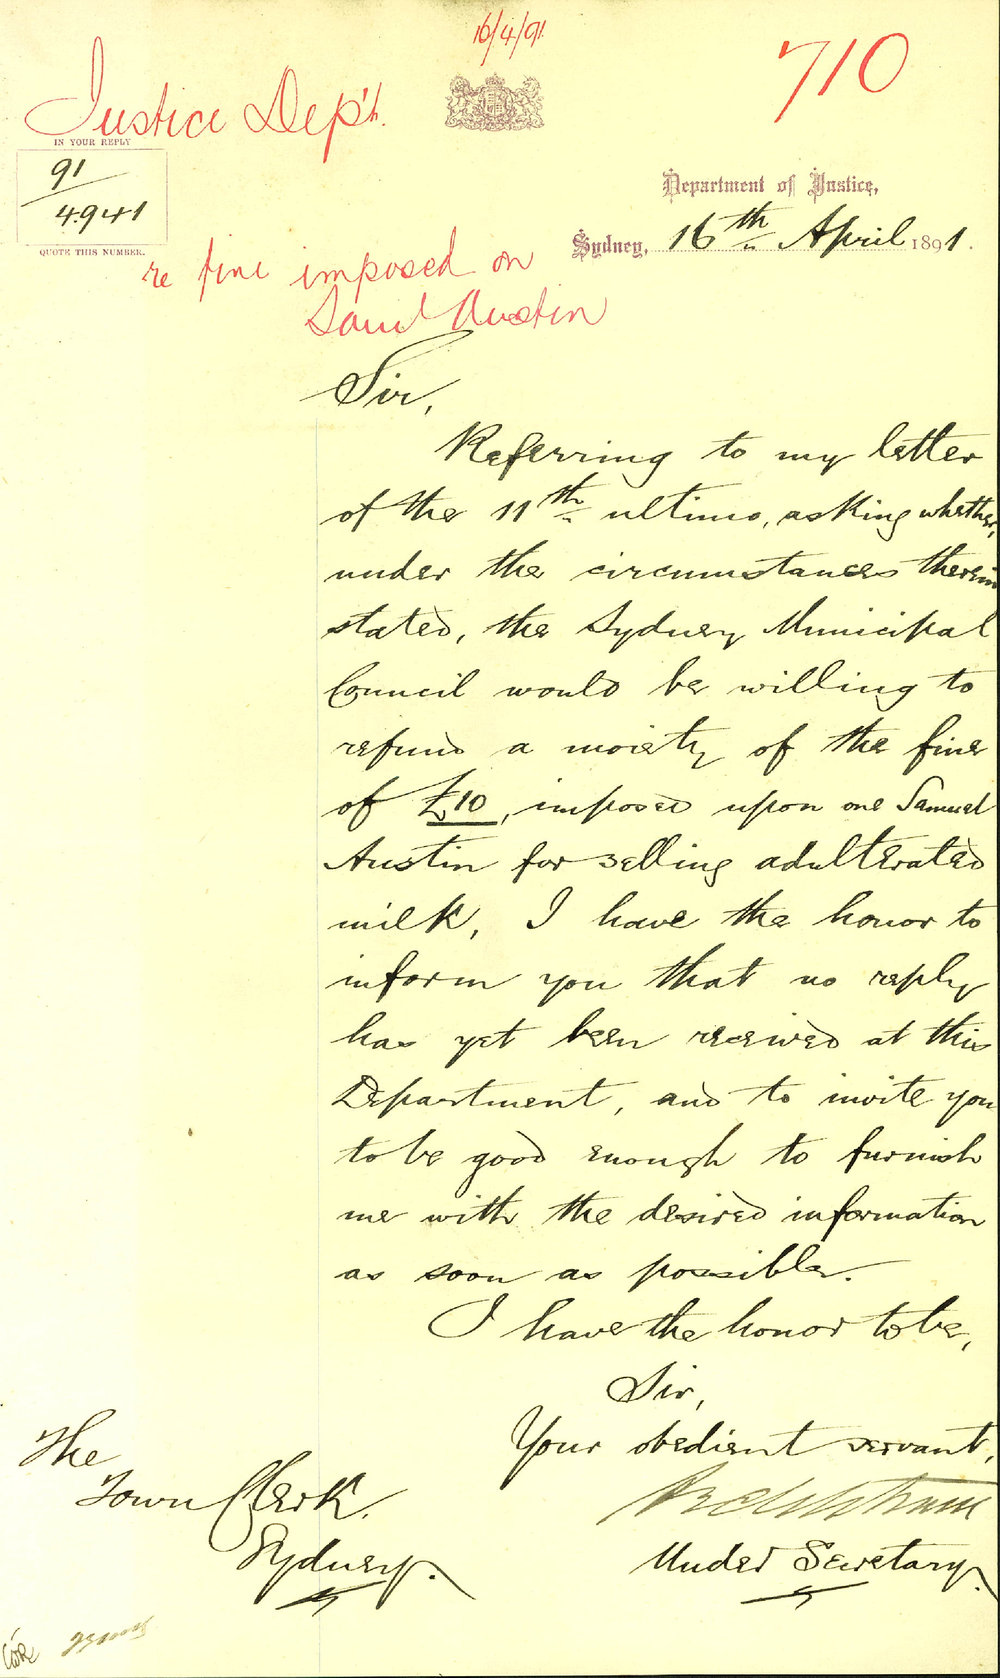 16/4/91
710
Justice Dep't.
IN YOUR REPLY
91/4941
QUOTE THIS NUMBER.
Department of Justice,
Sydney, 16th April 1891.
re fine imposed on
Saml Austin
Sir,
Referring to my letter
of the 11th ultimo, asking whether,
under the circumstances therein
stated, the Sydney Municipal
Council would be willing to
refund a moiety of the fine
of £10, imposed upon one Samuel
Austin for selling adulterated
milk, I have the honor to
inform you that no reply
has yet been received at this
Department, and to invite you
to be good enough to furnish
me with the desired information
as soon as possible.
I have the honor to be,
Sir,
Your obedient servant,
Under Secretary.
The
Town Clerk.
Sydney.